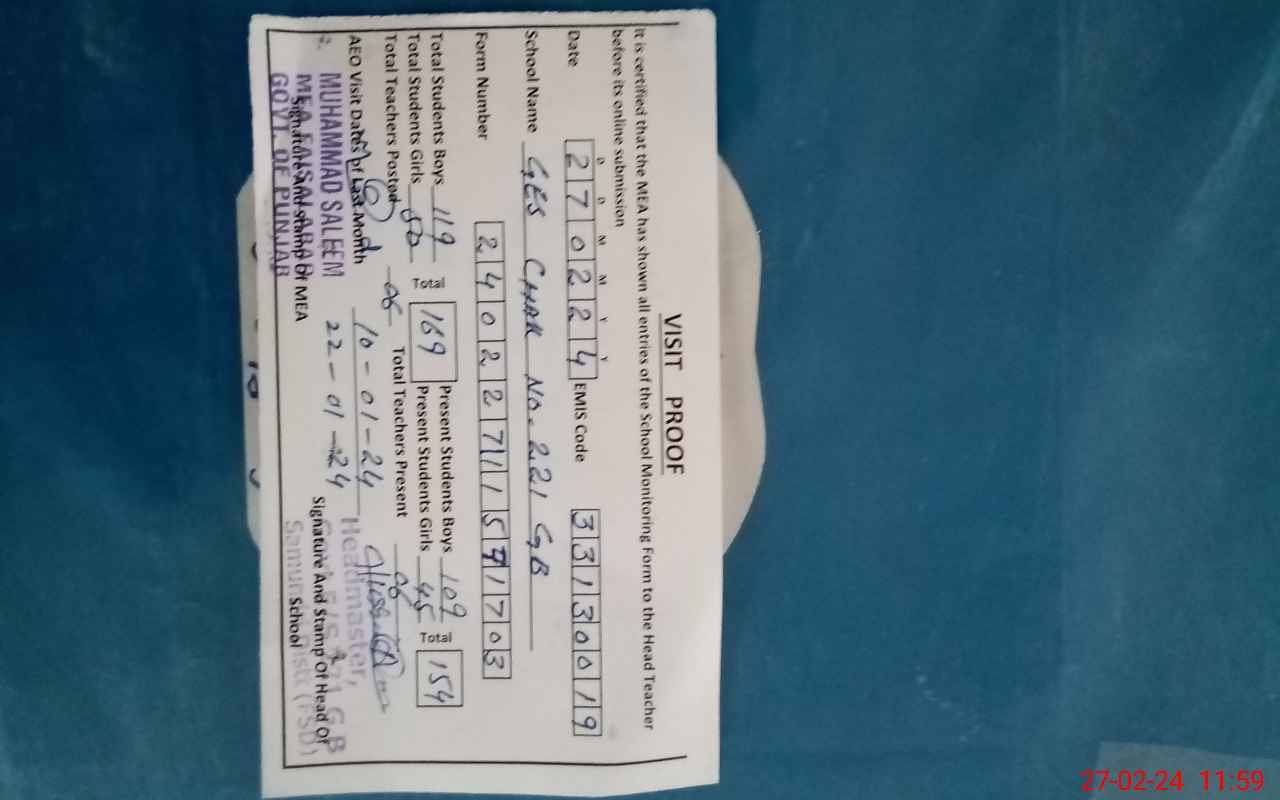 VISIT PROOF
It is certified that the MEA has shown all entries of the School Monitoring Form to the Head Teacher
before its online submission
D D M M Y Y
Date 270224 EMIS Code 33130019
School Name GES CHAK NO. 221 GB
Form Number 2402271151703
Total Students Boys 119 Total 169 Present Students Boys 109 Total 154
Total Students Girls 50 Present Students Girls 45
Total Teachers Posted 06 Total Teachers Present 06
AEO Visit Dates of Last Month 10-01-24
22-01-24
MUHAMMAD SALEEM
MEA FAISALABAD
GOVT. OF PUNJAB
Signature And Stamp Of MEA
Headmaster,
221 G.B
Signature And Stamp Of Head Of
School
(FSD)
27-02-24 11:59